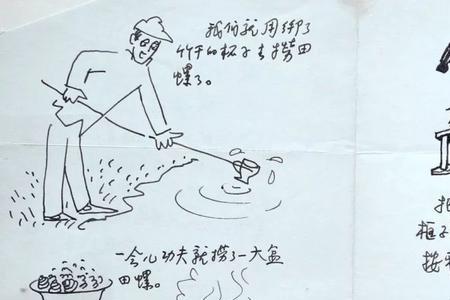 我们就用绑了
竹干的杯子去捞田
螺了。
一会儿功夫就捞了一大盆
田螺。
框子
按